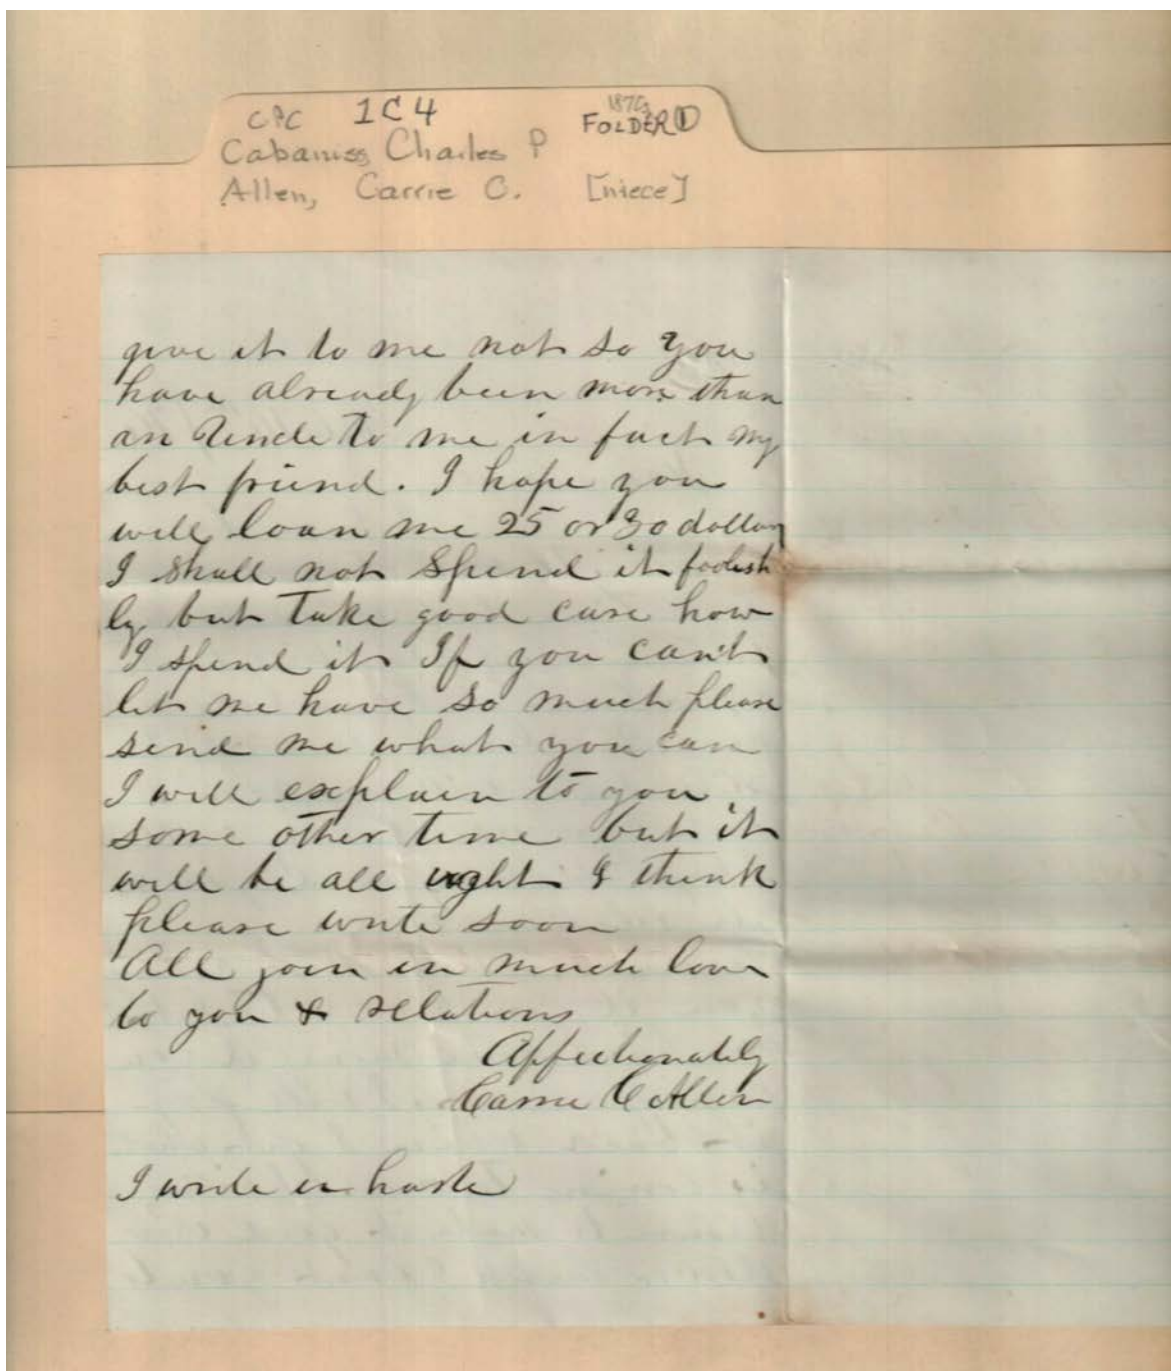 CPC 1C4 1870s
FOLDER 1
Cabaniss Charles P
Allen, Carrie C. [niece]
give it to me not so you
have already been more than
an Uncle to me in fact my
best friend. I hope you
will loan me 25 or 30 dollars
I shall not spend it foolish
ly but take good care how
I spend it If you can't
let me have so much please
send me what you can
I will explain to you
some other time but it
will be all right I think
please write soon
All join in much love
to you & relations
Affectionately
Carrie C Allen
I write in haste